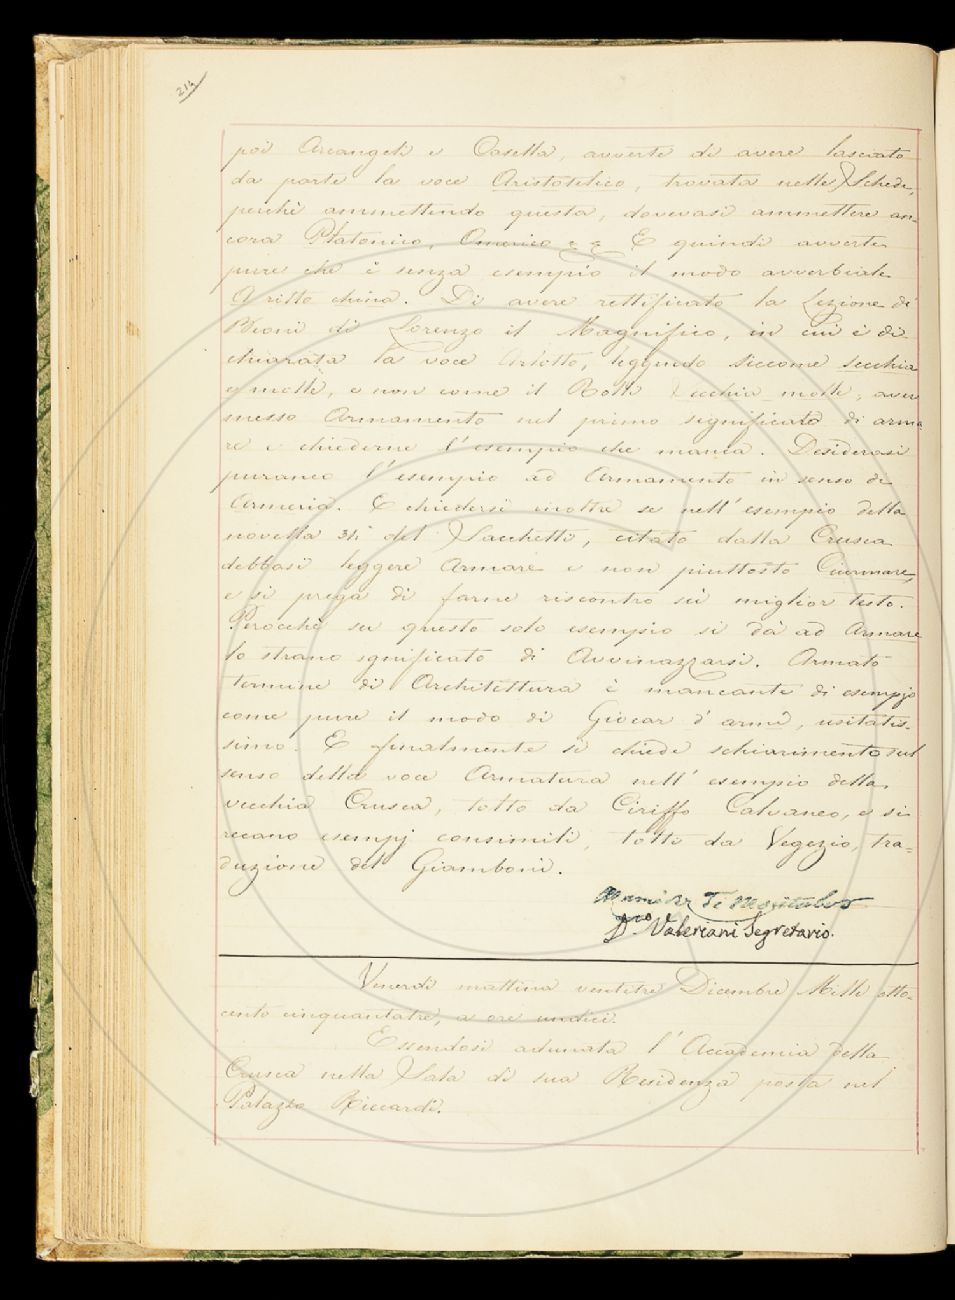 214
poi Arcangeli e Casella, avverte di avere lasciato
da parte la voce Aristotelico, trovata nelle Schede,
perchè ammettendo questa, dovevasi ammettere an-
cora Platonico, Omerico &. &. E quindi avverte
pure che è senza esempio il modo avverbiale
A ritto china. Di avere rettificato la Lezione de'
Beoni di Lorenzo il Magnifico, in cui è di-
chiarata la voce Arlotto, leggendo siccome secchia
e molle, e non come il Rolli secchia molle; aver
messo Armamento nel primo significato di arma-
re e chiederne l'esempio che manca. Desiderasi
puranco l'esempio ad Armamento in senso di
Armeria. E chiedersi inoltre se nell'esempio della
novella 34 del Sacchetti, citato dalla Crusca
debbasi leggere Armare e non piuttosto
e si prega di farne riscontro sù miglior testo.
Perocchè su questo solo esempio si dà ad Armare
lo strano significato di Avvinazzarsi. Armato
termine di Architettura è mancante di esempjo
come pure il modo di Giocar d'armi, usitatis-
simo. E finalmente si chiede schiarimento sul
senso della voce Armatura nell'esempio della
vecchia Crusca, tolto da Ciriffo Calvaneo, e si
recano esempj consimili, tolti da Vegezio, tra=
duzione del Giamboni.
D. Valeriani Segretario.
Venerdì mattina ventitre Dicembre Mille otto-
cento cinquantatre, a ore undici.
Essendosi adunata l'Accademia della
Crusca nella Sala di sua Residenza posta nel
Palazzo Riccardi.